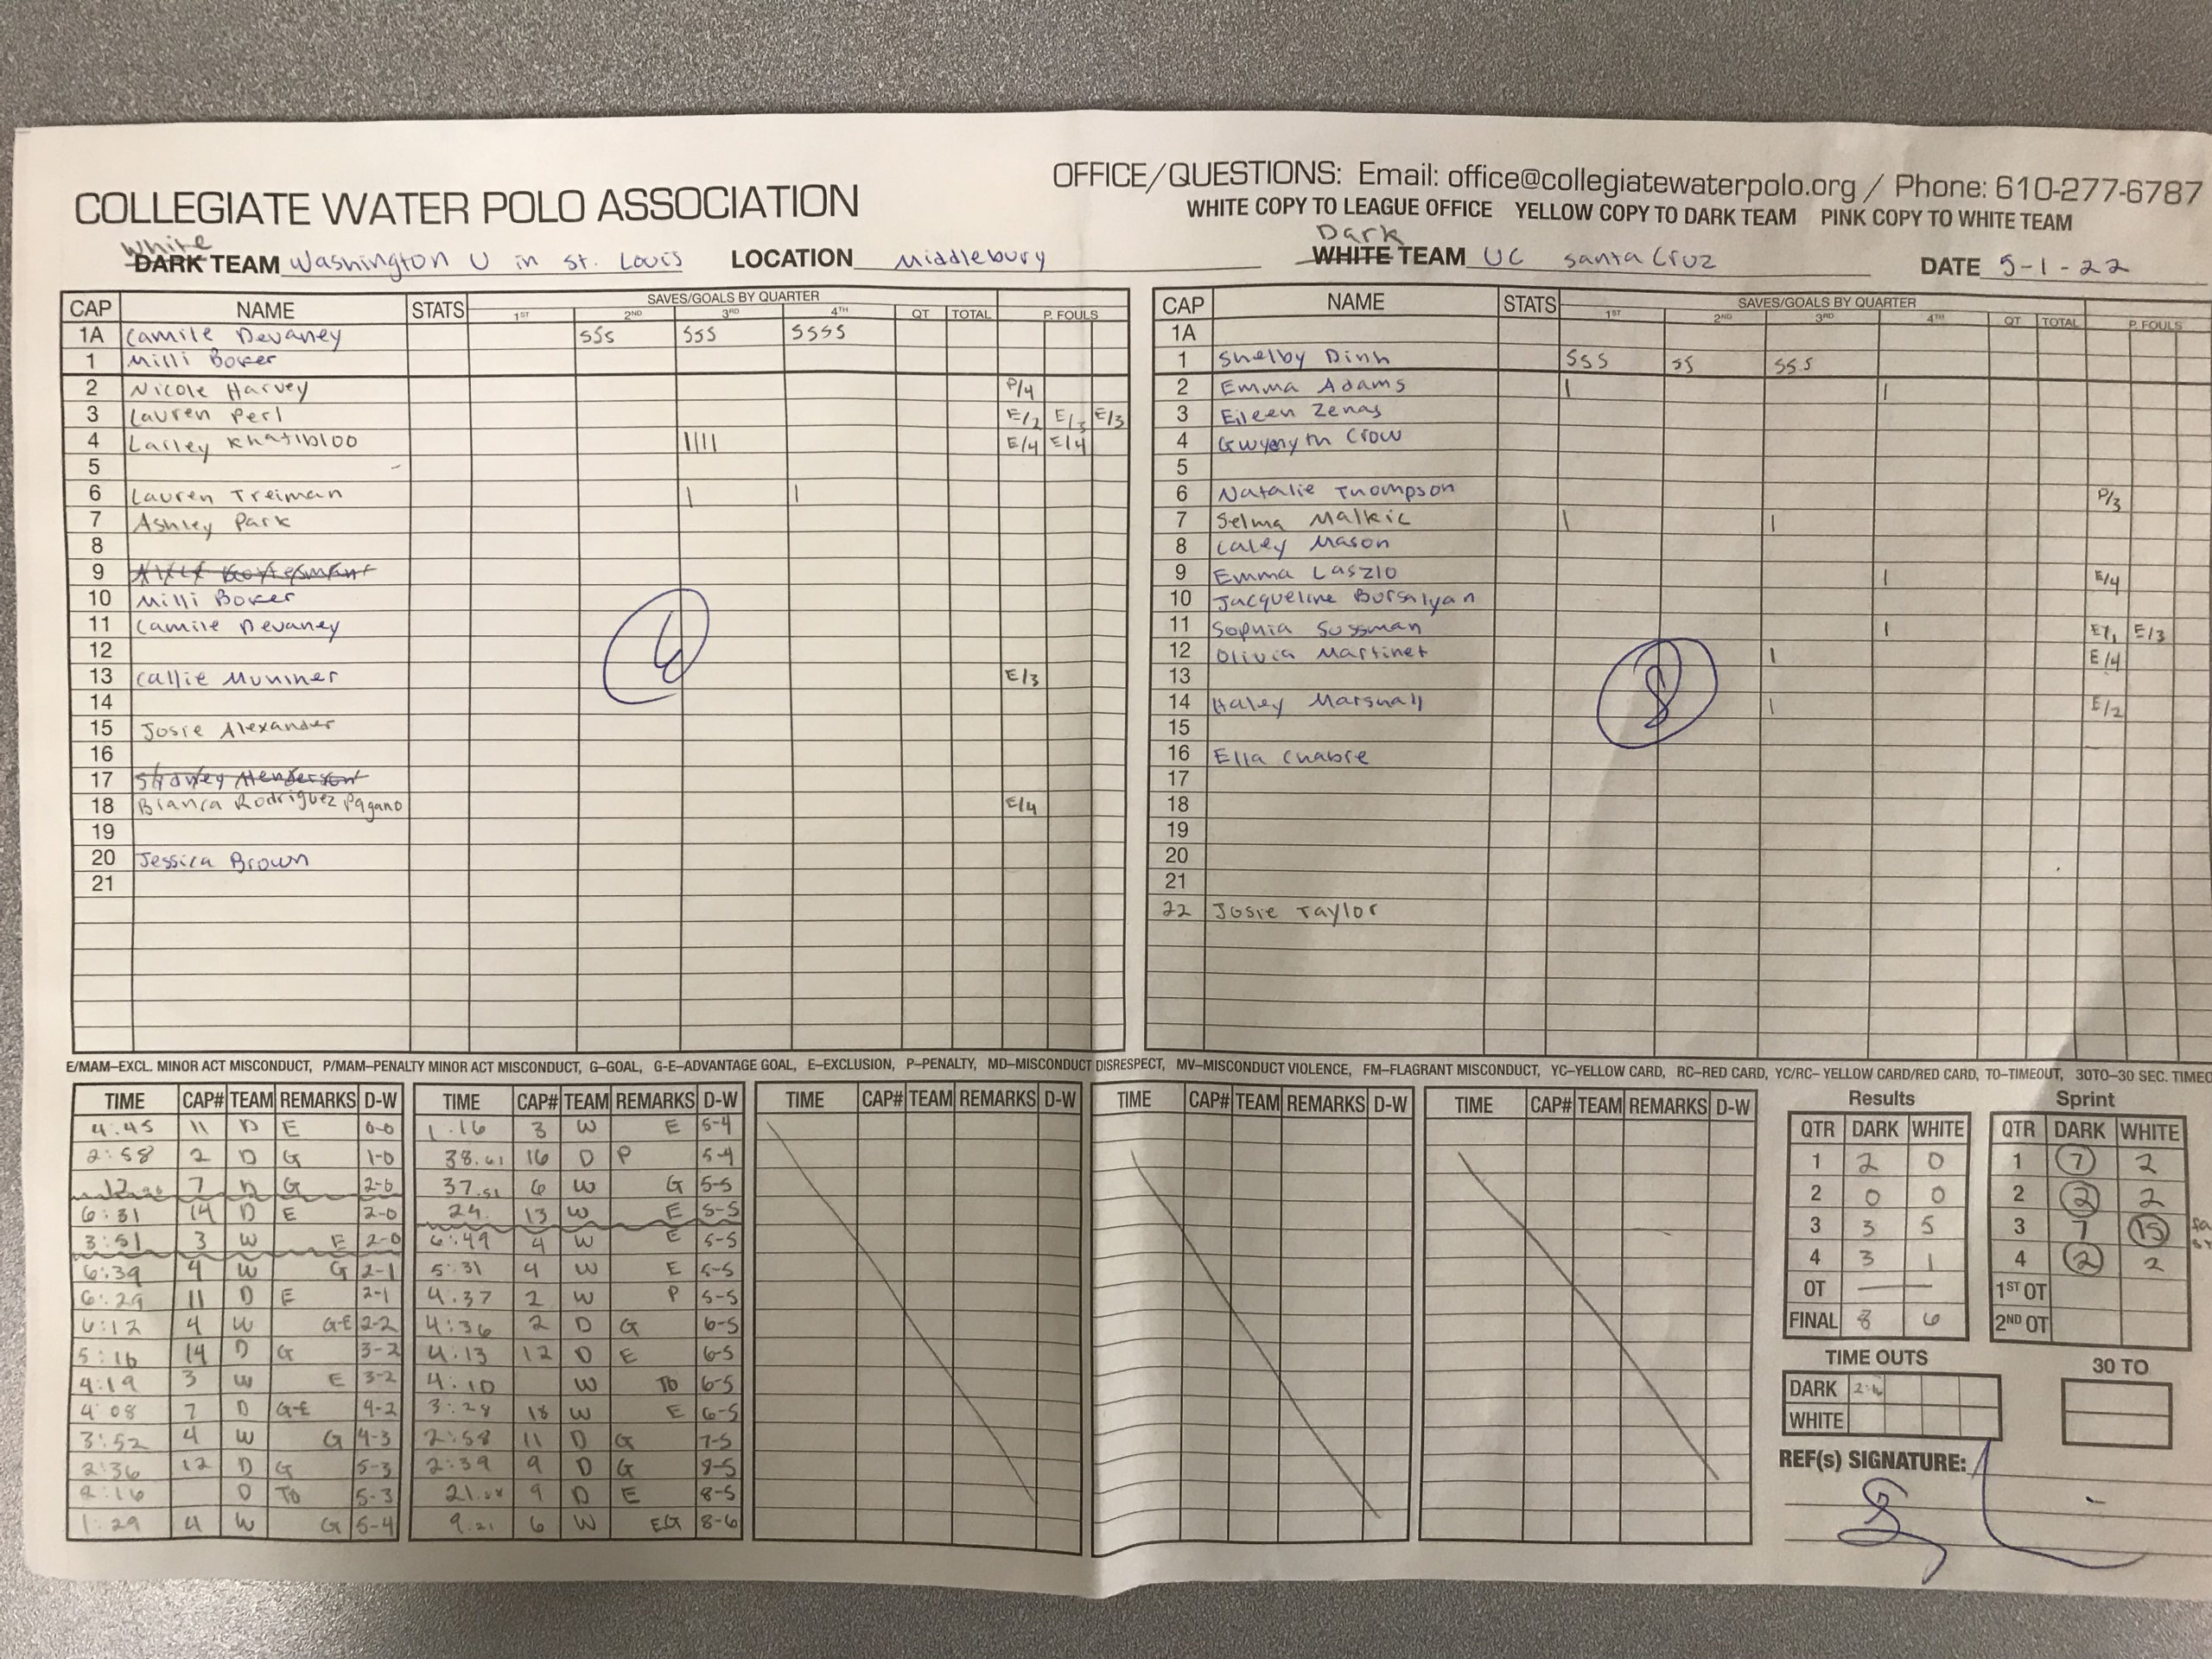 OFFICE/QUESTIONS: Email: office@collegiatewaterpolo.org / Phone: 610-277-6787
COLLEGIATE WATER POLO ASSOCIATION
WHITE COPY TO LEAGUE OFFICE YELLOW COPY TO DARK TEAM PINK COPY TO WHITE TEAM
White Dark
DARK TEAM Washington U in St. Louis LOCATION Middlebury WHITE TEAM UC Santa Cruz DATE 5-1-22
CAP NAME STATS SAVES/GOALS BY QUARTER 1ST 2ND 3RD 4TH QT TOTAL P. FOULS
1A Camile Devaney SSS SSS SSSS
1 Milli Boker
2 Nicole Harvey P/4
3 Lauren Perl E/2 E/3 E/3
4 Lailey Khatibloo IIII E/4 E/4
5
6 Lauren Treiman I I
7 Ashley Park
8
9
10 Milli Boker
11 Camile Devaney
12
13 Callie Mummer E/3
14
15 Josie Alexander
16
17 Sydney Henderson
18 Bianca Rodriguez Pagano E/4
19
20 Jessica Brown
21
6
CAP NAME STATS SAVES/GOALS BY QUARTER 1ST 2ND 3RD 4TH QT TOTAL P. FOULS
1A
1 Shelby Dinh SSS SS SSS
2 Emma Adams I I
3 Eileen Zenas
4 Gwynyth Crow
5
6 Natalie Thompson P/3
7 Selma Malkic I I
8 Caley Mason
9 Emma Laszlo I E/4
10 Jacqueline Borsalyan
11 Sophia Sussman I E/1 E/3
12 Olivia Martinet I E/4
13
14 Haley Marshall I E/2
15
16 Ella Chabre
17
18
19
20
21
22 Josie Taylor
8
E/MAM–EXCL. MINOR ACT MISCONDUCT, P/MAM–PENALTY MINOR ACT MISCONDUCT, G–GOAL, G-E–ADVANTAGE GOAL, E–EXCLUSION, P–PENALTY, MD–MISCONDUCT DISRESPECT, MV–MISCONDUCT VIOLENCE, FM–FLAGRANT MISCONDUCT, YC–YELLOW CARD, RC–RED CARD, YC/RC– YELLOW CARD/RED CARD, TO–TIMEOUT, 30TO–30 SEC.
TIME CAP# TEAM REMARKS D-W
4:45 11 D E 0-0
2:58 2 D G 1-0
7 D G 2-0
6:31 14 D E 2-0
3:51 3 W E 2-0
6:39 4 W G 2-1
6:29 11 D E 2-1
6:12 4 W G-E 2-2
5:16 14 D G 3-2
4:19 3 W E 3-2
4:08 7 D G-E 4-2
3:52 4 W G 4-3
2:36 12 D G 5-3
2:16 D TO 5-3
1:29 4 W G 5-4
TIME CAP# TEAM REMARKS D-W
1:16 3 W E 5-4
38.61 16 D P 5-4
37.51 6 W G 5-5
24. 13 W E 5-5
6:49 4 W E 5-5
5:31 4 W E 5-5
4:37 2 W P 5-5
4:36 2 D G 6-5
4:13 12 D E 6-5
4:10 W TO 6-5
3:28 18 W E 6-5
2:58 11 D G 7-5
2:39 9 D G 8-5
9 D E 8-5
9.21 6 W EG 8-6
TIME CAP# TEAM REMARKS D-W
TIME CAP# TEAM REMARKS D-W
TIME CAP# TEAM REMARKS D-W
Results
QTR DARK WHITE
1 2 0
2 0 0
3 3 5
4 3 1
OT
FINAL 8 6
Sprint
QTR DARK WHITE
1 7 2
2 2 2
3 7 15
4 2 2
1ST OT
2ND OT
TIME OUTS
DARK
WHITE
30 TO
REF(s) SIGNATURE: